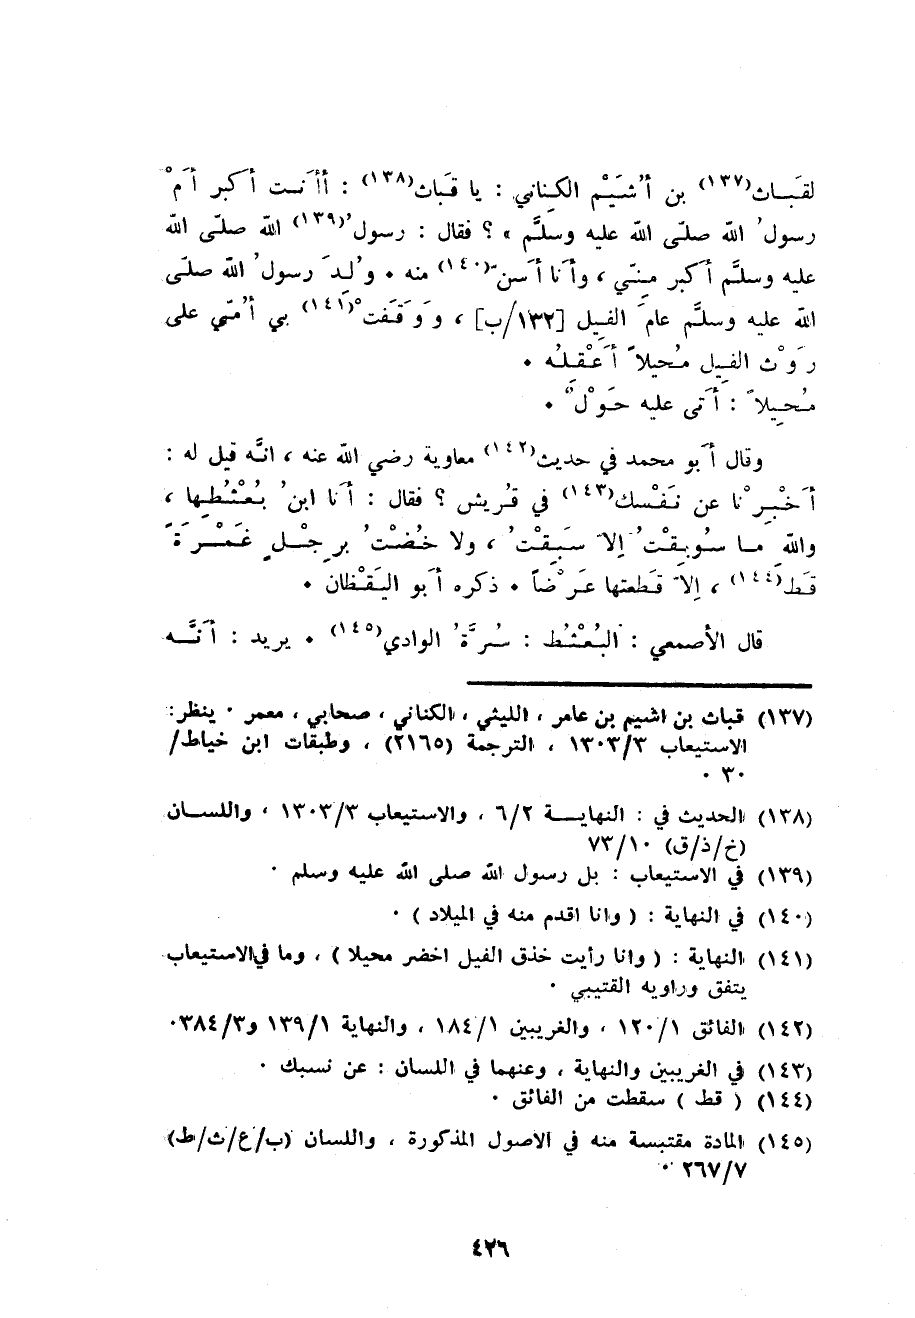 لقَبــاث(١٣٧) بن أُشَيَم الكِناني : يا قَبَاث(١٣٨) : أأَنـت أَكبر أَمْ
رسولُ اللّٰه صلّى اللّٰه عليه وسلَّم » ؟ فقال : رسولُ(١٣٩) اللّٰه صلّى اللّٰه
عليه وسلَّم أَكبر مِنّي ، وأَنا أَسنّ(١٤٠) منه • وُلِدَ رسولُ اللّٰه صلّى
اللّٰه عليه وسلَّم عامَ الفيل [١٣٢/ب] ، وَوَقَفَتْ(١٤١) بي أُمّي على
رَوْث الفيل مُحيلاً أَعْقِلُه •
مُحيلاً : أَتى عليه حَوْلٌ •
وقال أَبو محمد في حديث(١٤٢) معاوية رضي اللّٰه عنه ، انَّه قيل له :
أَخْبِرْنا عن نَفْسك(١٤٣) في قُريش ؟ فقال : أَنا ابنُ بُعْثُطِها ،
واللّٰهِ مـا سُوبِقْتُ إِلاّ سَبَقْتُ ، ولا خُضْتُ بِرِجْلٍ غَمْـرَةً
قَط(١٤٤) ، إِلاّ قَطَعتها عَرْضاً • ذكره أَبو اليَقْظان •
قال الأصمعي : البُعْثُط : سُرَّةُ الوادي(١٤٥) • يريد : أَنَّــه
(١٣٧) قباث بن اشيم بن عامر ، الليثي ، الكناني ، صحابي ، معمر • ينظر:
الاستيعاب ١٣٠٣/٣ ، الترجمة (٢١٦٥) ، وطبقات ابن خياط/
٣٠ •
(١٣٨) الحديث في : النهايــة ٦/٢ ، والاستيعاب ١٣٠٣/٣ ، واللســان
(خ/ذ/ق) ٧٣/١٠
(١٣٩) في الاستيعاب : بل رسول اللّٰه صلى اللّٰه عليه وسلم •
(١٤٠) في النهاية : ( وانا اقدم منه في الميلاد ) •
(١٤١) النهاية : ( وانا رأيت خذق الفيل اخضر محيلا ) ، وما في الاستيعاب
يتفق وراويه القتيبي •
(١٤٢) الفائق ١٢٠/١ ، والغريبين ١٨٤/١ ، والنهاية ١٣٩/١ و٣٨٤/٣•
(١٤٣) في الغريبين والنهاية ، وعنهما في اللسان : عن نسبك •
(١٤٤) ( قط ) سقطت من الفائق •
(١٤٥) المادة مقتبسة منه في الاصول المذكورة ، واللسان (ب/ع/ث/ط)
٢٦٧/٧ •
٤٢٦